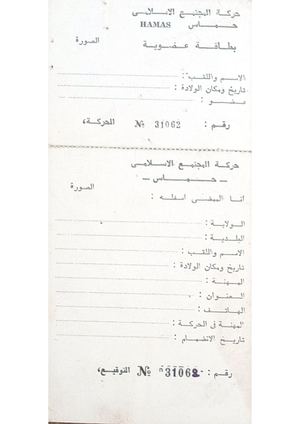 حركة المجتمع الاسلامي
حـمـاس HAMAS
بطاقة عضوية
الصورة
الاسم واللقب :
تاريخ ومكان الولادة :
عضو :
رقم : 31062 № للحركة،
حركة المجتمع الاسلامي
— حـمـاس —
الصورة
انا الممضى اسفله :
الولاية :
البلدية :
الاسم واللقب :
تاريخ ومكان الولادة :
المهنة :
العنوان :
الهاتف :
المهنة في الحركة :
تاريخ الانضمام :
رقم : 31062 № التوقيع،